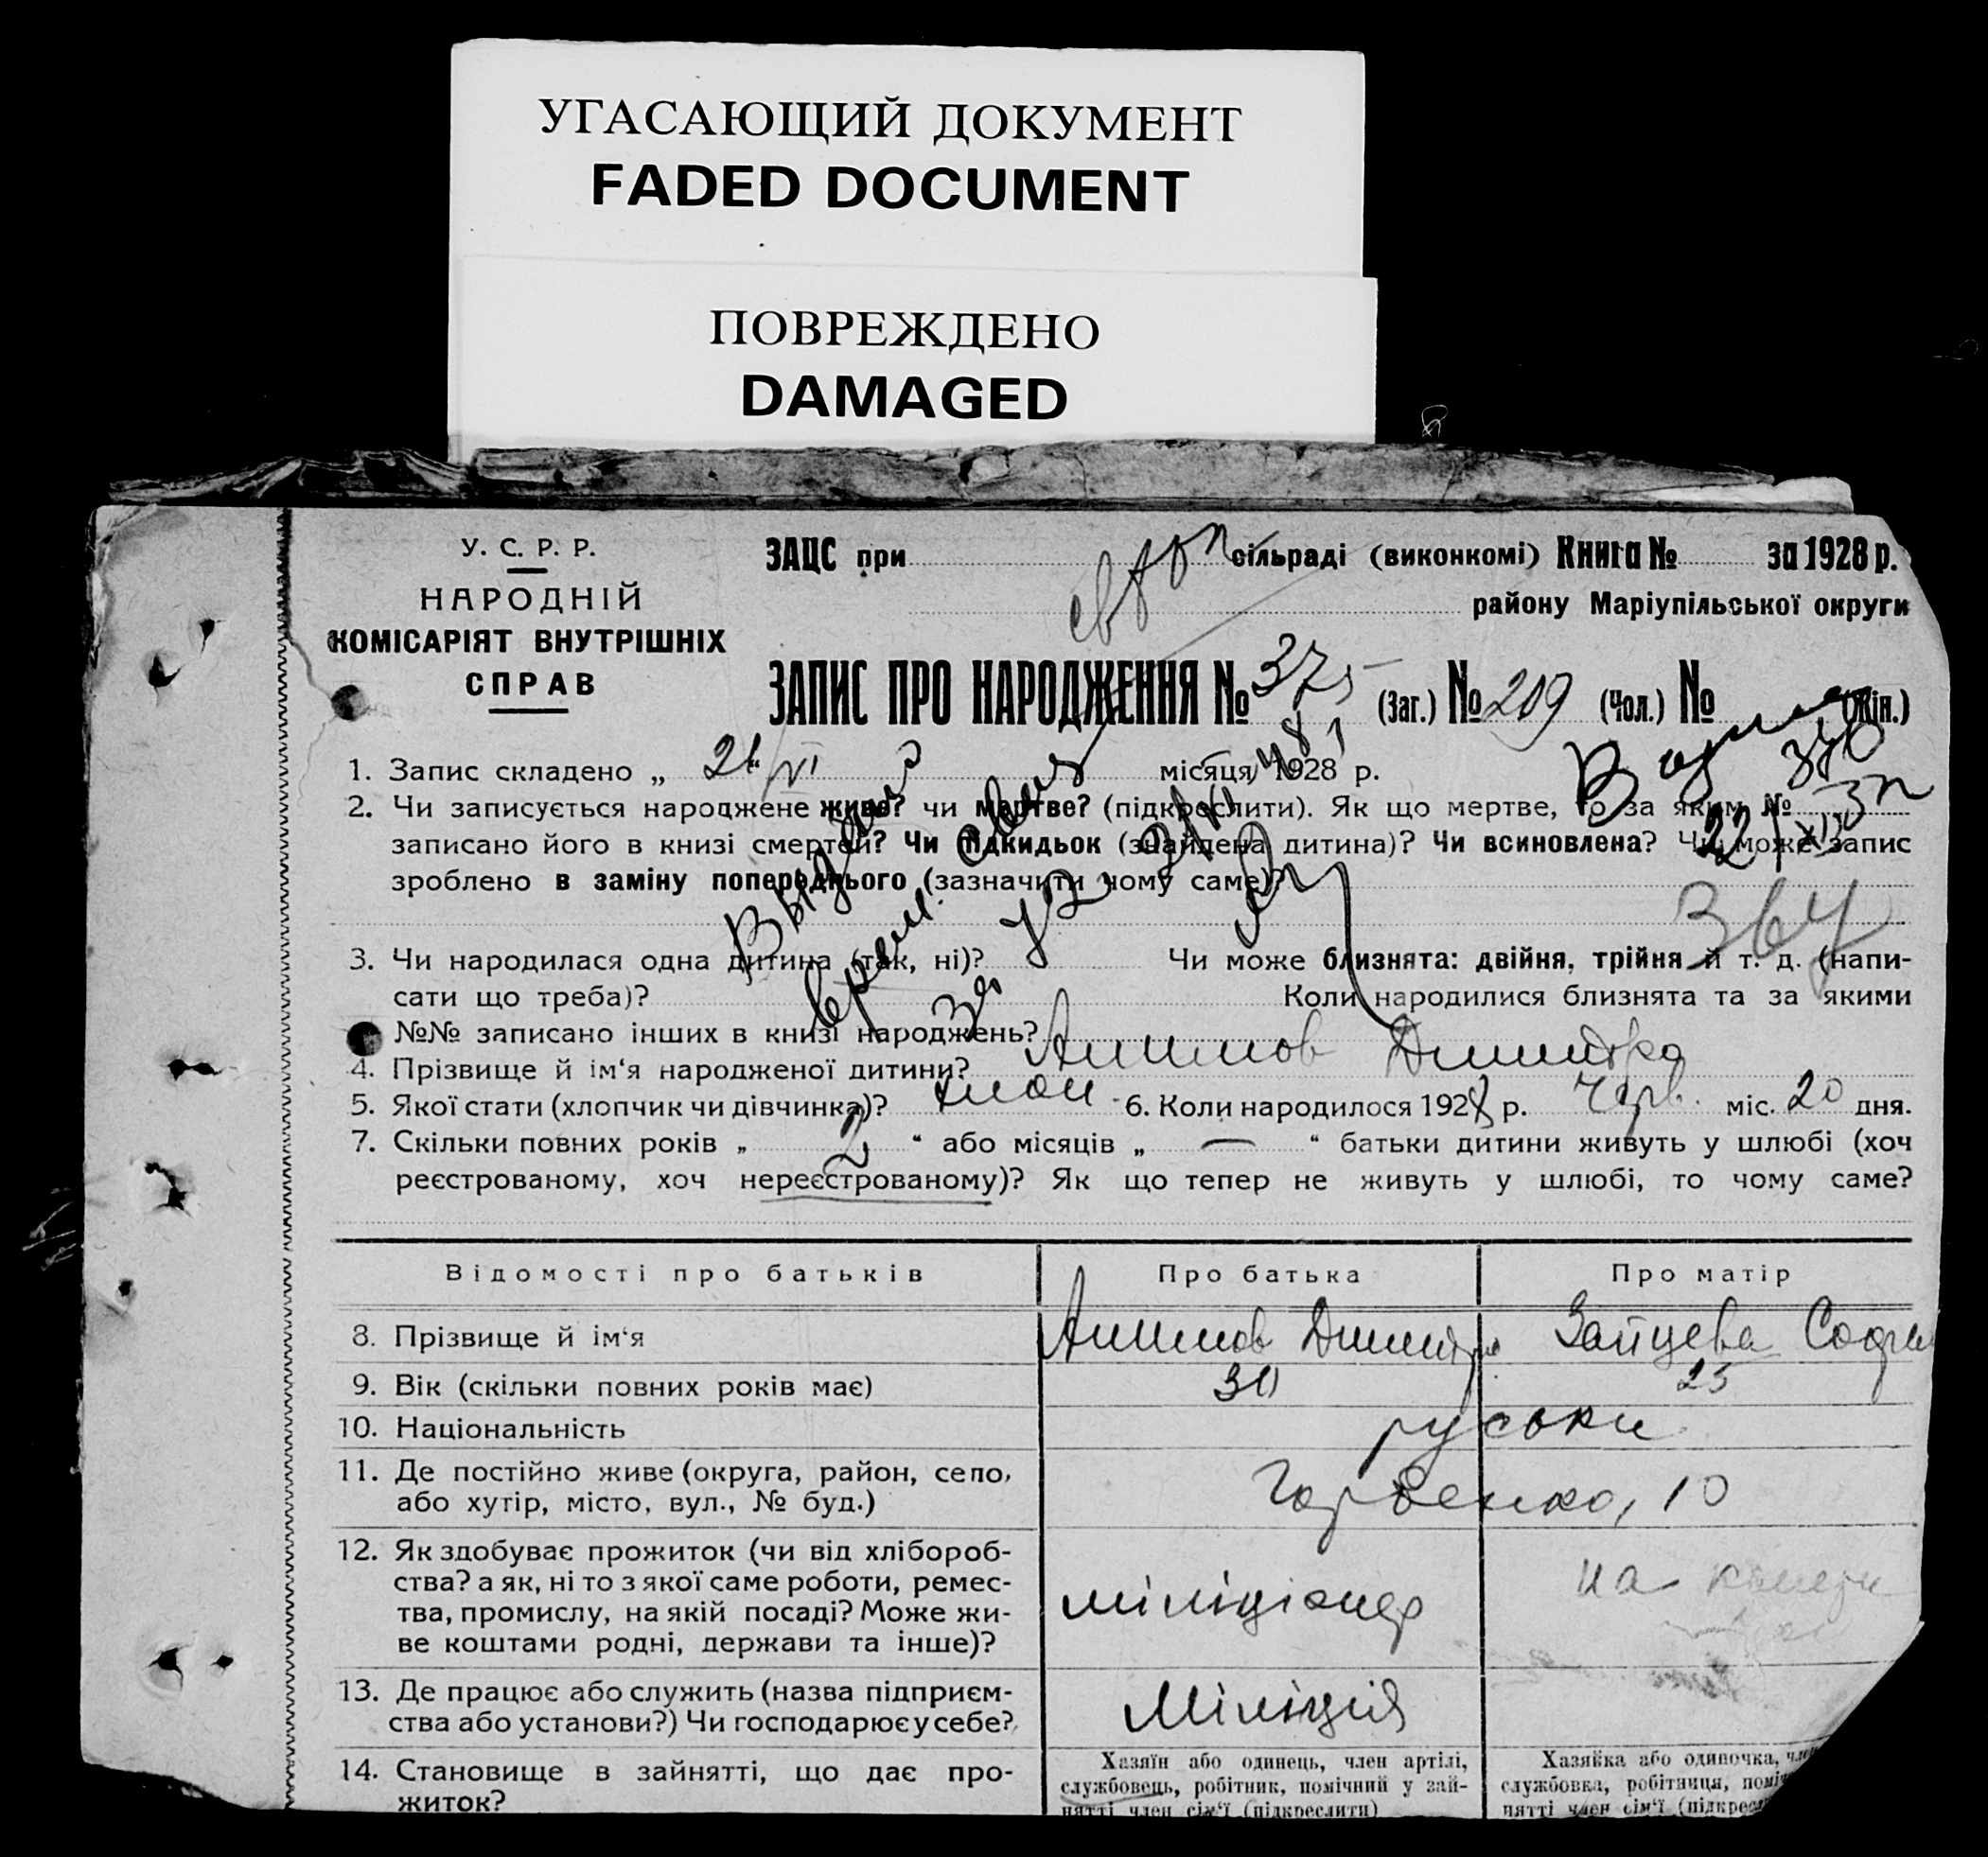 УГАСАЮЩИЙ ДОКУМЕНТ
FADED DOCUMENT
ПОВРЕЖДЕНО
DAMAGED
У. С. Р. Р.
НАРОДНІЙ
КОМІСАРІЯТ ВНУТРІШНІХ
СПРАВ
ЗАЦС при сільраді (виконкомі) Книга № за 1928 р.
району Маріупільської округи
ЗАПИС ПРО НАРОДЖЕННЯ № 375 (Заг.) № 209 (Чол.) № (Жін.)
1. Запис складено „ 21 “ VI місяця 1928 р.
2. Чи записується народжене живе? чи мертве? (підкреслити). Як що мертве, то за яким №
записано його в книзі смертей? Чи підкидьок (знайдена дитина)? Чи всиновлена? Чи може запис
зроблено в заміну попереднього (зазначити чому саме)?
364
3. Чи народилася одна дитина (так, ні)? Чи може близнята: двійня, трійня й т. д. (напи-
сати що треба)? Коли народилися близнята та за якими
№№ записано інших в книзі народжень?
4. Прізвище й ім‘я народженої дитини?
5. Якої стати (хлопчик чи дівчинка)? 6. Коли народилося 1928 р. Черв. міс. 20 дня.
7. Скільки повних років „ 2 “ або місяців „ — “ батьки дитини живуть у шлюбі (хоч
реєстрованому, хоч нереєстрованому)? Як що тепер не живуть у шлюбі, то чому саме?
Відомості про батьків Про батька Про матір
8. Прізвище й ім‘я Зайцева Софія
9. Вік (скільки повних років має) 30 25
10. Національність руськи
11. Де постійно живе (округа, район, село,
або хутір, місто, вул., № буд.) 10
12. Як здобуває прожиток (чи від хлібороб-
ства? а як, ні то з якої саме роботи, ремес-
тва, промислу, на якій посаді? Може жи-
ве коштами родні, держави та інше)?
міліціонер на
13. Де працює або служить (назва підприєм-
ства або установи?) Чи господарює у себе?
Міліція
14. Становище в зайнятті, що дає про-
житок?
Хазяїн або одинець, член артілі,
службовець, робітник, помічний у зай-
нятті член сім‘ї (підкреслити)
Хазяйка або одиночка,
службовка, робітниця,
нятті член сім‘ї